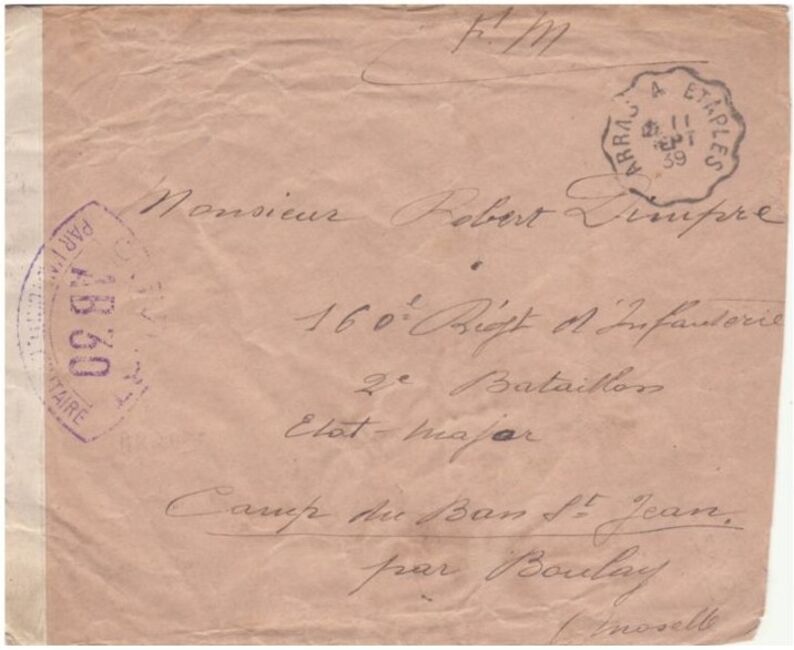 F. M
ARRAS A ETAPLES
11
SEPT
39
Monsieur Robert Dimpre
160e Régt d'Infanterie
2e Bataillon
Etat-major
Camp du Ban St Jean
par Boulay
(Moselle
OUVERT
PAR L'AUTORITÉ MILITAIRE
AB 30